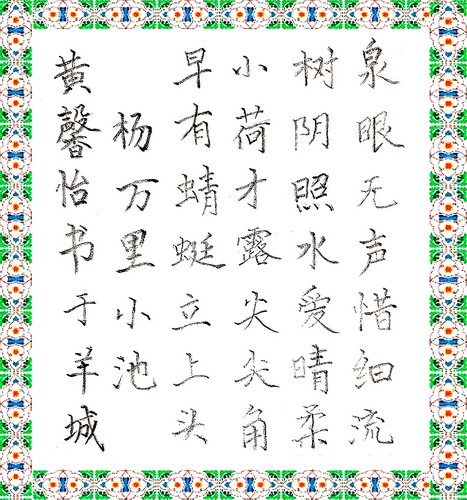 泉眼无声惜细流
树阴照水爱晴柔
小荷才露尖尖角
早有蜻蜓立上头
杨万里小池
黄馨怡书于羊城